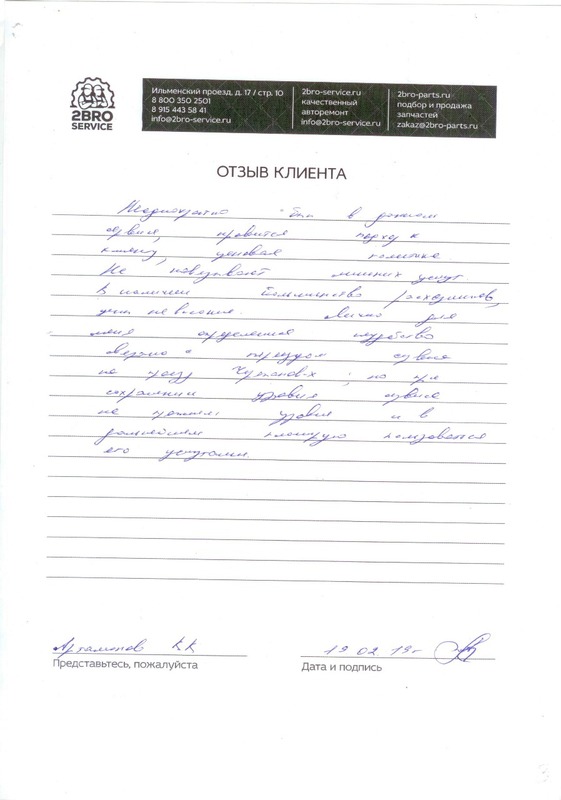 2BRO
SERVICE
Ильменский проезд, д. 17 / стр. 10
8 800 350 2501
8 915 443 58 41
info@2bro-service.ru
2bro-service.ru
качественный
авторемонт
info@2bro-service.ru
2bro-parts.ru
подбор и продажа
запчастей
zakaz@2bro-parts.ru
ОТЗЫВ КЛИЕНТА
Неоднократно был в данном
сервисе, нравится подход к
клиенту, ценовая политика
Не навязывают лишних услуг.
В наличии большинство расходников,
цены не высокие. Лично для
меня определенное неудобство
с переездом сервиса
на проезд но при
сохранении уровня сервиса
на прежнем уровне и в
дальнейшем планирую пользоваться
его услугами.
Артамонов
Представьтесь, пожалуйста
19 02 19г
Дата и подпись